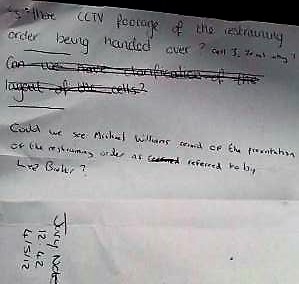 Is there CCTV footage of the restraining
order being handed over?
Can we have clarification of the
layout of the cells?
Could we see Michael Williams record of the presentation
of the restraining order as referred to by
Lee Butler?
Jury Note
12:42
4/5/12